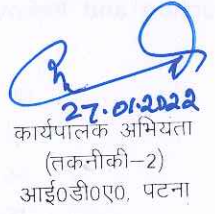 27.01.2022
कार्यपालक अभियंता
(तकनीकी-2)
आई०डी०ए०, पटना